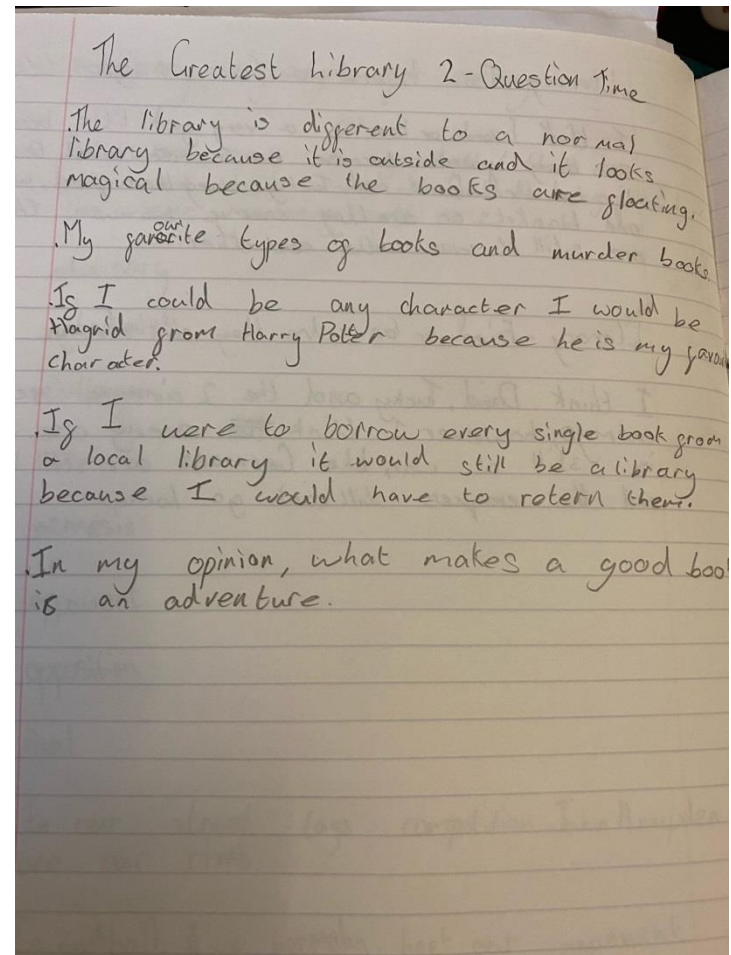 The Greatest Library 2 - Question Time
.The library is different to a normal
library because it is outside and it looks
magical because the books are floating.
.My favourite types of books and murder books.
.If I could be any character I would be
Hagrid from Harry Potter because he is my favou
character.
.If I were to borrow every single book from
a local library it would still be a library
because I would have to retern them.
.In my opinion, what makes a good boo
is an adventure.